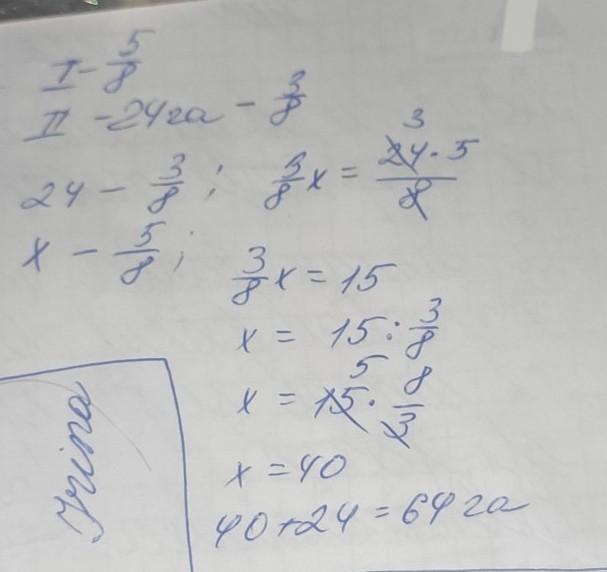 I - 5/8
II - 24га - 3/8
24 - 3/8 ; 3/8 x = 24 · 5 / 8 3
x - 5/8 ;
3/8 x = 15
x = 15 : 3/8
x = 15 · 8/3 5
x = 40
40 + 24 = 64 га
Irina